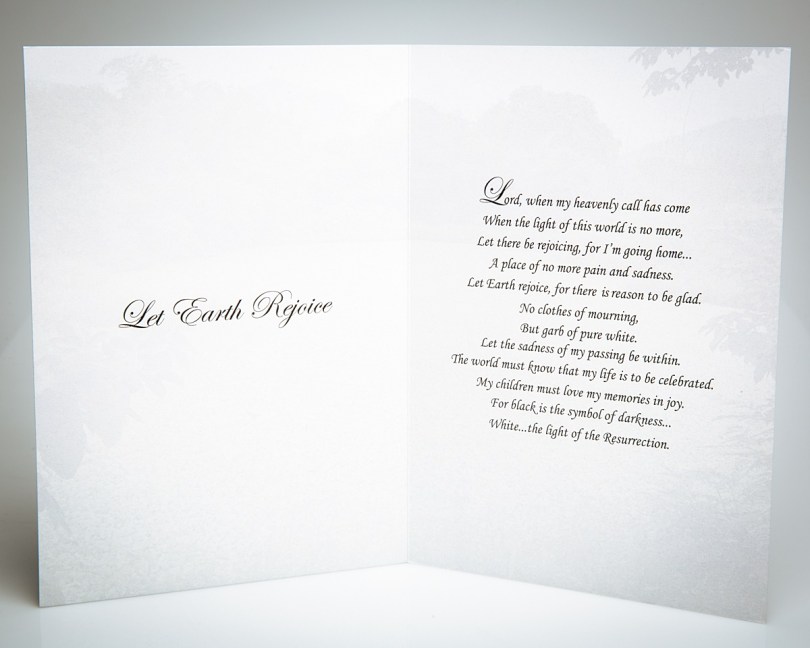 Let Earth Rejoice
Lord, when my heavenly call has come
When the light of this world is no more,
Let there be rejoicing, for I'm going home...
A place of no more pain and sadness.
Let Earth rejoice, for there is reason to be glad.
No clothes of mourning,
But garb of pure white.
Let the sadness of my passing be within.
The world must know that my life is to be celebrated.
My children must love my memories in joy.
For black is the symbol of darkness...
White...the light of the Resurrection.